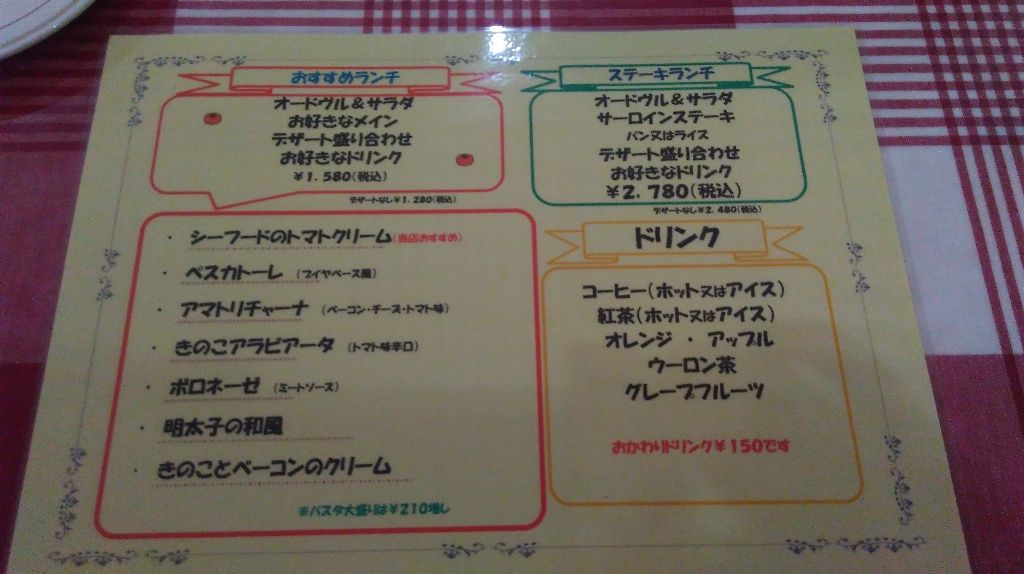 おすすめランチ
オードヴル＆サラダ
お好きなメイン
デザート盛り合わせ
お好きなドリンク
￥1.580(税込)
デザートなし￥1.280(税込)
・ シーフードのトマトクリーム(当店おすすめ)
・ ペスカトーレ (ブイヤベース風)
・ アマトリチャーナ (ベーコン・チーズ・トマト味)
・ きのこアラビアータ (トマト味辛口)
・ ボロネーゼ (ミートソース)
・ 明太子の和風
・ きのことベーコンのクリーム
※パスタ大盛りは￥210増し
ステーキランチ
オードヴル＆サラダ
サーロインステーキ
パン又はライス
デザート盛り合わせ
お好きなドリンク
￥2.780(税込)
デザートなし￥2.480(税込)
ドリンク
コーヒー(ホット又はアイス)
紅茶(ホット又はアイス)
オレンジ ・ アップル
ウーロン茶
グレープフルーツ
おかわりドリンク￥150です